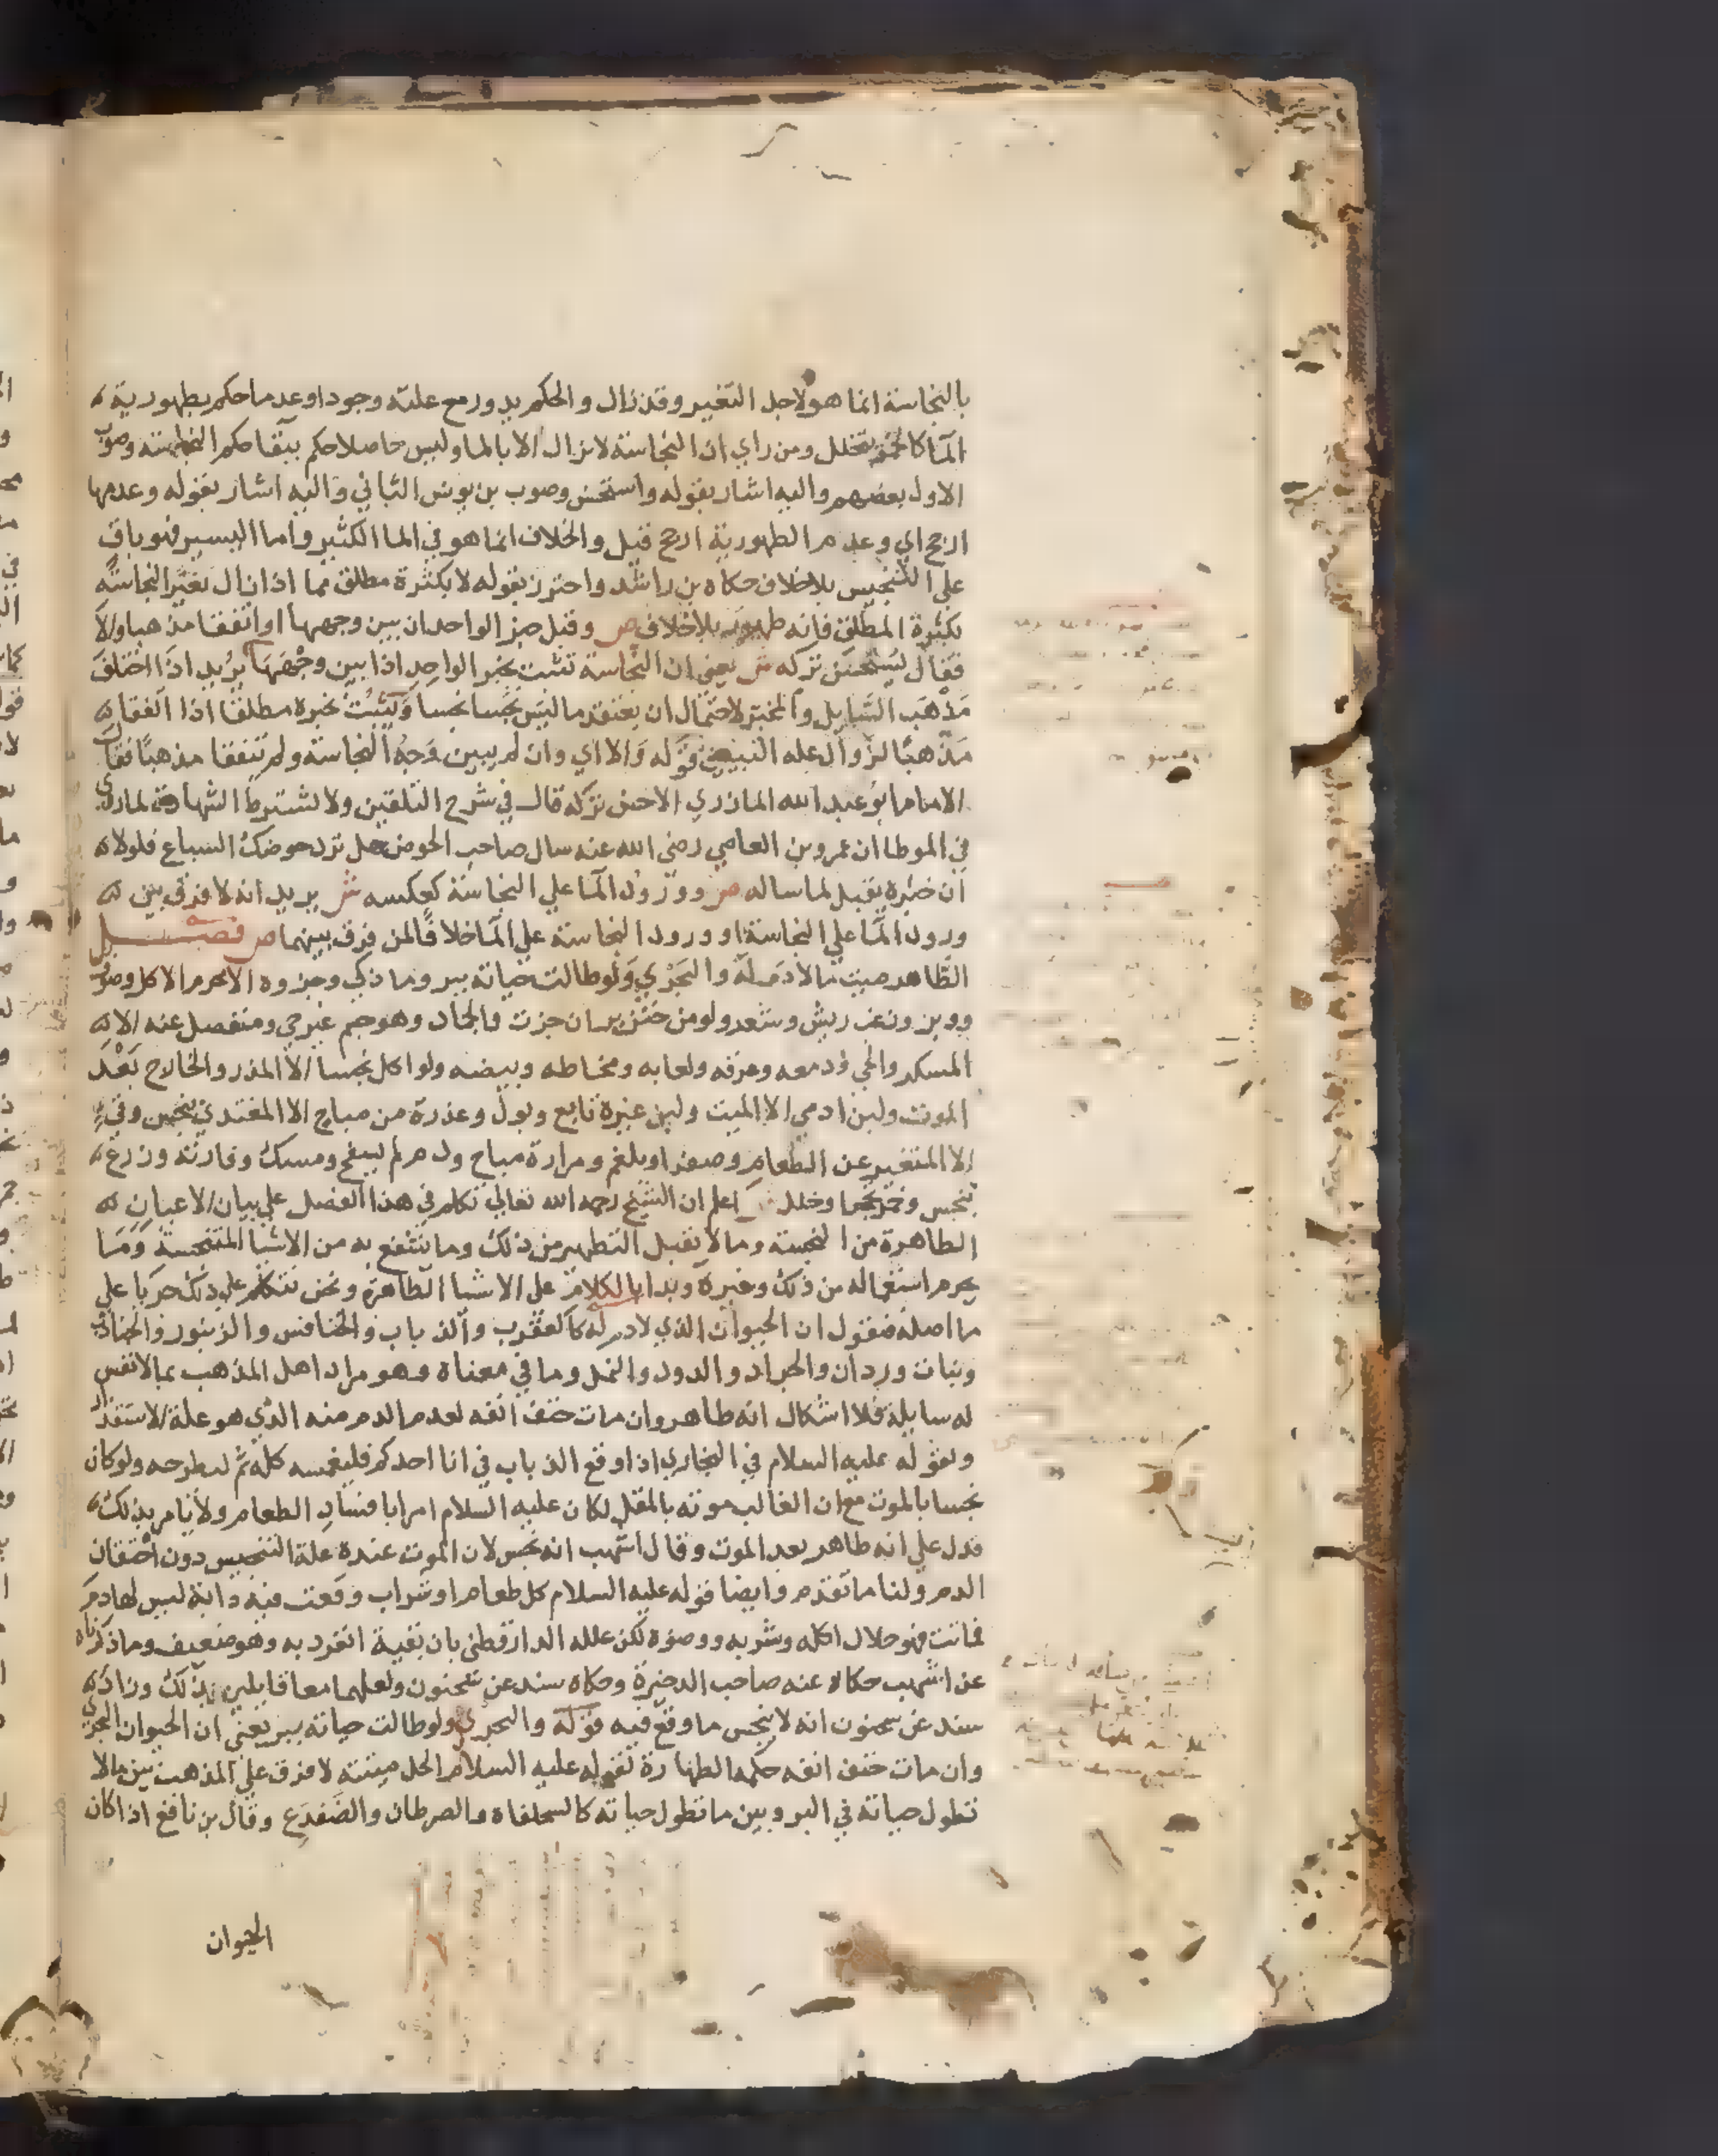 بالنجاسة انما هو لاجل التغير وقد زال والحكم يدور مع علته وجودا وعدما حكم بطهورية
الما كالخمر يتخلل ومن راي ان النجاسة لا تزال الا بالما وليس حاصلا حكم ببقا حكم النجاسة وصوب
الاول بعضهم واليه اشار بقوله واستحسن وصوب بن يونس الثاني واليه اشار بقوله وعدمها
ارجح اي وعدم الطهورية ارجح قيل والخلاف انما هو في الما الكثير واما اليسير فهو باق
علي التنجيس بلا خلاف حكاه بن راشد واحترز بقوله لا بكثرة مطلق مما اذا زال تغير النجاسة
بكثرة المطلق فانه طهور بلا خلاف ص وقبل خبر الواحد ان بين وجهها او اتفقا مذهبا والا
فقال يستحسن تركه ش يعني ان النجاسة تثبت بخبر الواحد اذا بين وجهها يريد اذا اختلف
مذهب السايل والمخبر لاحتمال ان يعتقد ما ليس نجسا نجسا ويثبت بخبره مطلقا اذا اتفقا
مذهبا لزوال عله التبيين قوله والا اي وان لم يبين وجه النجاسة ولم يتفقا مذهبا فقال
الامام ابو عبد الله المازري الاحسن تركه قال في شرح التلقين ولا تشترط الشهادة لما روي
في الموطا ان عمرو بن العاصي رضي الله عنه سال صاحب الحوض هل ترد حوضك السباع فلولا
ان خبره يقبل لما ساله ص وورود الما علي النجاسة كعكسه ش يريد انه لا فرق بين
ورود الما علي النجاسة او ورود النجاسة علي الما خلافا لمن فرق بينهما ص فصل
الطاهر ميت ما لا دم له والبحري ولو طالت حياته ببر وما ذكي وجزوه الا محرم الاكل وصوف
ووبر وزغب ريش وشعر ولو من خنزير ان جزت والجماد وهو جسم غير حي ومنفصل عنه الا
المسكر والحي ودمعه وعرقه ولعابه ومخاطه وبيضه ولو اكل نجسا الا المذر والخارج بعد
الموت ولبن ادمي الا الميت ولبن غيره تابع وبول وعذرة من مباح الا المغتدي بنجس وقيء
الا المتغير عن الطعام وصفرا وبلغم ومرارة مباح ودم لم يسفح ومسك وفارته وزرع
بنجس وخمر تحجر او خلل اعلم ان الشيخ رحمه الله تعالي تكلم في هذا الفصل علي بيان الاعيان
الطاهرة من النجسة وما لا يقبل التطهير من ذلك وما ينتفع به من الاشيا المتنجسة وما
يحرم استعماله من ذلك وغيره وبدا بالكلام علي الاشيا الطاهرة ونحن نتكلم علي ذلك جريا علي
ما اصله فنقول ان الحيوان الذي لا دم له كالعقرب والذباب والخنافس والزنبور والجنادب
وبنات وردان والجراد والدود والنمل وما في معناه وهو مراد اهل المذهب بما لا نفس
له سايلة فلا اشكال انه طاهر وان مات حتف انفه لعدم الدم منه الذي هو علة الاستقذار
ولقوله عليه السلام في البخاري اذا وقع الذباب في انا احدكم فليغمسه كله ثم ليطرحه ولو كان
نجسا بالموت مع ان الغالب موته بالمقل لكان عليه السلام امرا بافساد الطعام ولا يامر بذلك
فدل علي انه طاهر بعد الموت وقال اشهب انه نجس لان الموت عنده علة التنجيس دون احتقان
الدم ولنا ما تقدم وايضا قوله عليه السلام كل طعام او شراب وقعت فيه دابة ليس لها دم
فماتت فهو حلال اكله وشربه ووضوه لكن علله الدارقطني بان بقية انفرد به وهو ضعيف وما ذكرناه
عن اشهب حكاه عنه صاحب الدخيرة وحكاه سند عن سحنون ولعلهما معا قايلين بذلك وزاد
سند عن سحنون انه لا ينجس ما وقع فيه قوله والبحري ولو طالت حياته ببر يعني ان الحيوان البحري
وان مات حتف انفه حكمه الطهارة لقوله عليه السلام الحل ميتته لا فرق علي المذهب بين ما لا
تطول حياته في البر وبين ما تطول حياته كالسحلفاة والصرطان والضفدع وقال بن نافع اذا كان
الحيوان